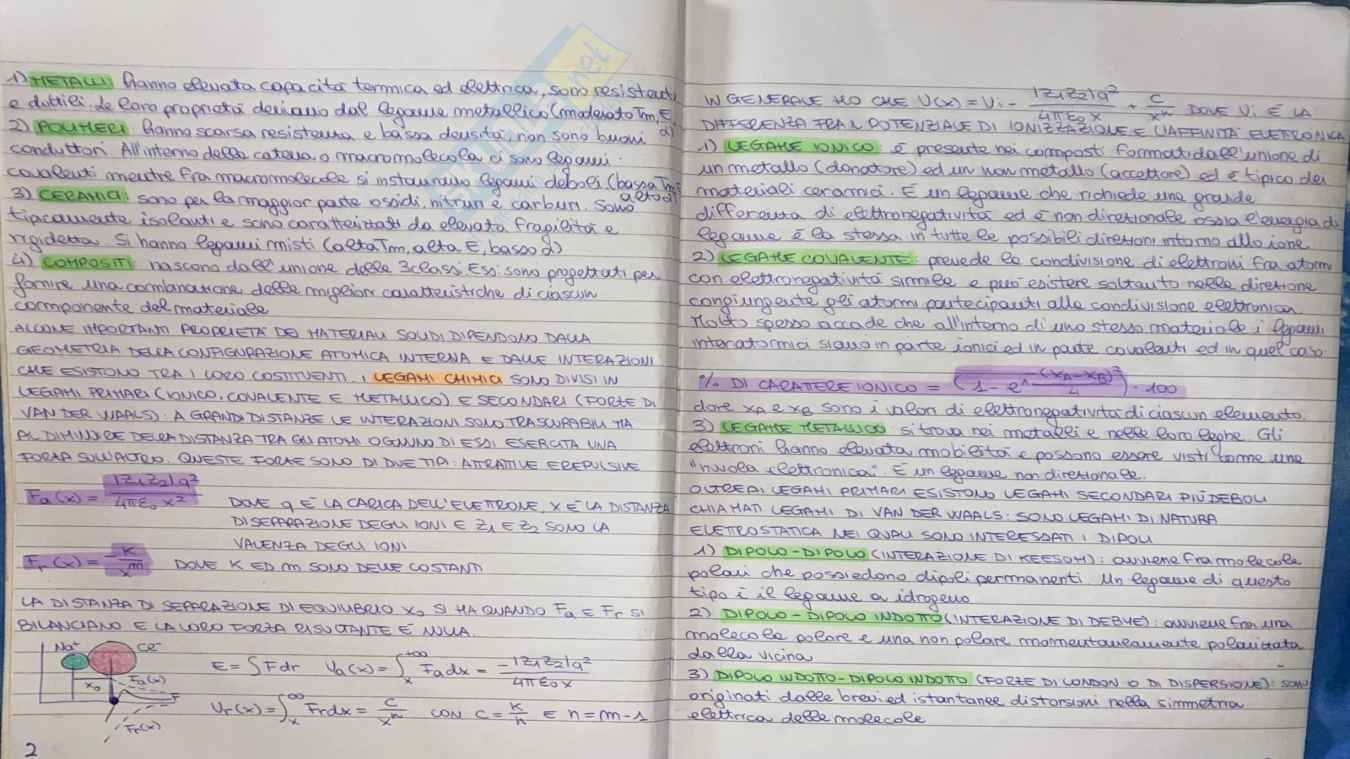 1) METALLI hanno elevata capacità termica ed elettrica, sono resistenti
e duttili. Le loro proprietà derivano dal legame metallico (moderato Tm, E,
α)
2) POLIMERI hanno scarsa resistenza e bassa densità, non sono buoni
conduttori. All'interno della catena o macromolecola ci sono legami
covalenti mentre fra macromolecole si instaurano legami deboli (bassa Tm,
alto α)
3) CERAMICI sono per la maggior parte ossidi, nitruri e carburi. Sono
tipicamente isolanti e sono caratterizzati da elevata fragilità e
rigidezza. Si hanno legami misti (alta Tm, alta E, basso α)
4) COMPOSITI nascono dall'unione delle 3 classi. Essi sono progettati per
fornire una combinazione delle migliori caratteristiche di ciascun
componente del materiale
ALCUNE IMPORTANTI PROPRIETÀ DEI MATERIALI SOLIDI DIPENDONO DALLA
GEOMETRIA DELLA CONFIGURAZIONE ATOMICA INTERNA E DALLE INTERAZIONI
CHE ESISTONO TRA I LORO COSTITUENTI. I LEGAMI CHIMICI SONO DIVISI IN
LEGAMI PRIMARI (IONICO, COVALENTE E METALLICO) E SECONDARI (FORZE DI
VAN DER WAALS): A GRANDI DISTANZE LE INTERAZIONI SONO TRASCURABILI MA
AL DIMINUIRE DELLA DISTANZA TRA GLI ATOMI OGNUNO DI ESSI ESERCITA UNA
FORZA SULL'ALTRO. QUESTE FORZE SONO DI DUE TIPI: ATTRATTIVE E REPULSIVE
Fa(x) = |Z1Z2|q²/4πε0x² DOVE q È LA CARICA DELL'ELETTRONE, X È LA DISTANZA
DI SEPARAZIONE DEGLI IONI E Z1 E Z2 SONO LA
VALENZA DEGLI IONI
Fr(x) = -K/x^m DOVE K ED m SONO DELLE COSTANTI
LA DISTANZA DI SEPARAZIONE DI EQUILIBRIO X0 SI HA QUANDO Fa E Fr SI
BILANCIANO E LA LORO FORZA RISULTANTE È NULLA.
Na+ Cl-
x0 Fa(x)
Fr(x)
E = ∫F dr Ua(x) = ∫x^+∞ Fa dx = -|Z1Z2|q²/4πε0x
Ur(x) = ∫x^∞ Fr dx = C/x^n CON C = K/n E n = m-1
2
IN GENERALE HO CHE U(x) = Ui - |Z1Z2|q²/4πε0x + C/x^n DOVE Ui È LA
DIFFERENZA FRA IL POTENZIALE DI IONIZZAZIONE E L'AFFINITÀ ELETTRONICA
1) LEGAME IONICO è presente nei composti formati dall'unione di
un metallo (donatore) ed un non metallo (accettore) ed è tipico dei
materiali ceramici. È un legame che richiede una grande
differenza di elettronegatività ed è non direzionale ossia l'energia di
legame è la stessa in tutte le possibili direzioni intorno allo ione
2) LEGAME COVALENTE prevede la condivisione di elettroni fra atomi
con elettronegatività simile e può esistere soltanto nelle direzione
congiungente gli atomi partecipanti alla condivisione elettronica.
Molto spesso accade che all'interno di uno stesso materiale i legami
interatomici siano in parte ionici ed in parte covalenti ed in quel caso
% DI CARATTERE IONICO = (1 - e^ -(xA-xB)²/4) · 100
dove xA e xB sono i valori di elettronegatività di ciascun elemento.
3) LEGAME METALLICO si trova nei metalli e nelle loro leghe. Gli
elettroni hanno elevata mobilità e possono essere visti come una
"nuvola elettronica". È un legame non direzionale.
OLTRE AI LEGAMI PRIMARI ESISTONO LEGAMI SECONDARI PIÙ DEBOLI
CHIAMATI LEGAMI DI VAN DER WAALS: SONO LEGAMI DI NATURA
ELETROSTATICA NEI QUALI SONO INTERESSATI I DIPOLI
1) DIPOLO-DIPOLO (INTERAZIONE DI KEESOM): avviene fra molecole
polari che possiedono dipoli permanenti. Un legame di questo
tipo è il legame a idrogeno
2) DIPOLO-DIPOLO INDOTTO (INTERAZIONE DI DEBYE): avviene fra una
molecola polare e una non polare momentaneamente polarizzata
dalla vicina
3) DIPOLO INDOTTO-DIPOLO INDOTTO (FORZE DI LONDON O DI DISPERSIONE): sono
originati dalle brevi ed istantanee distorsioni nella simmetria
elettrica delle molecole